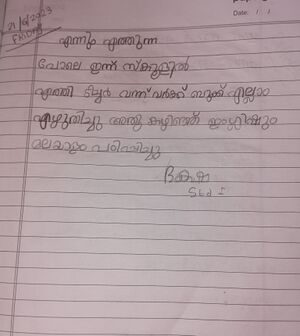 21/6/2023
FRIDAY
Date: / /
എന്നും എത്തുന്ന
പോലെ ഇന്ന് സ്കൂളിൽ
എത്തി ടീച്ചർ വന്ന് വർക്ക് ബുക്ക് എല്ലാം
എഴുതിച്ചു അതു കഴിഞ്ഞ് ഇംഗ്ലീഷും
മലയാളം പഠിച്ചു
Std I